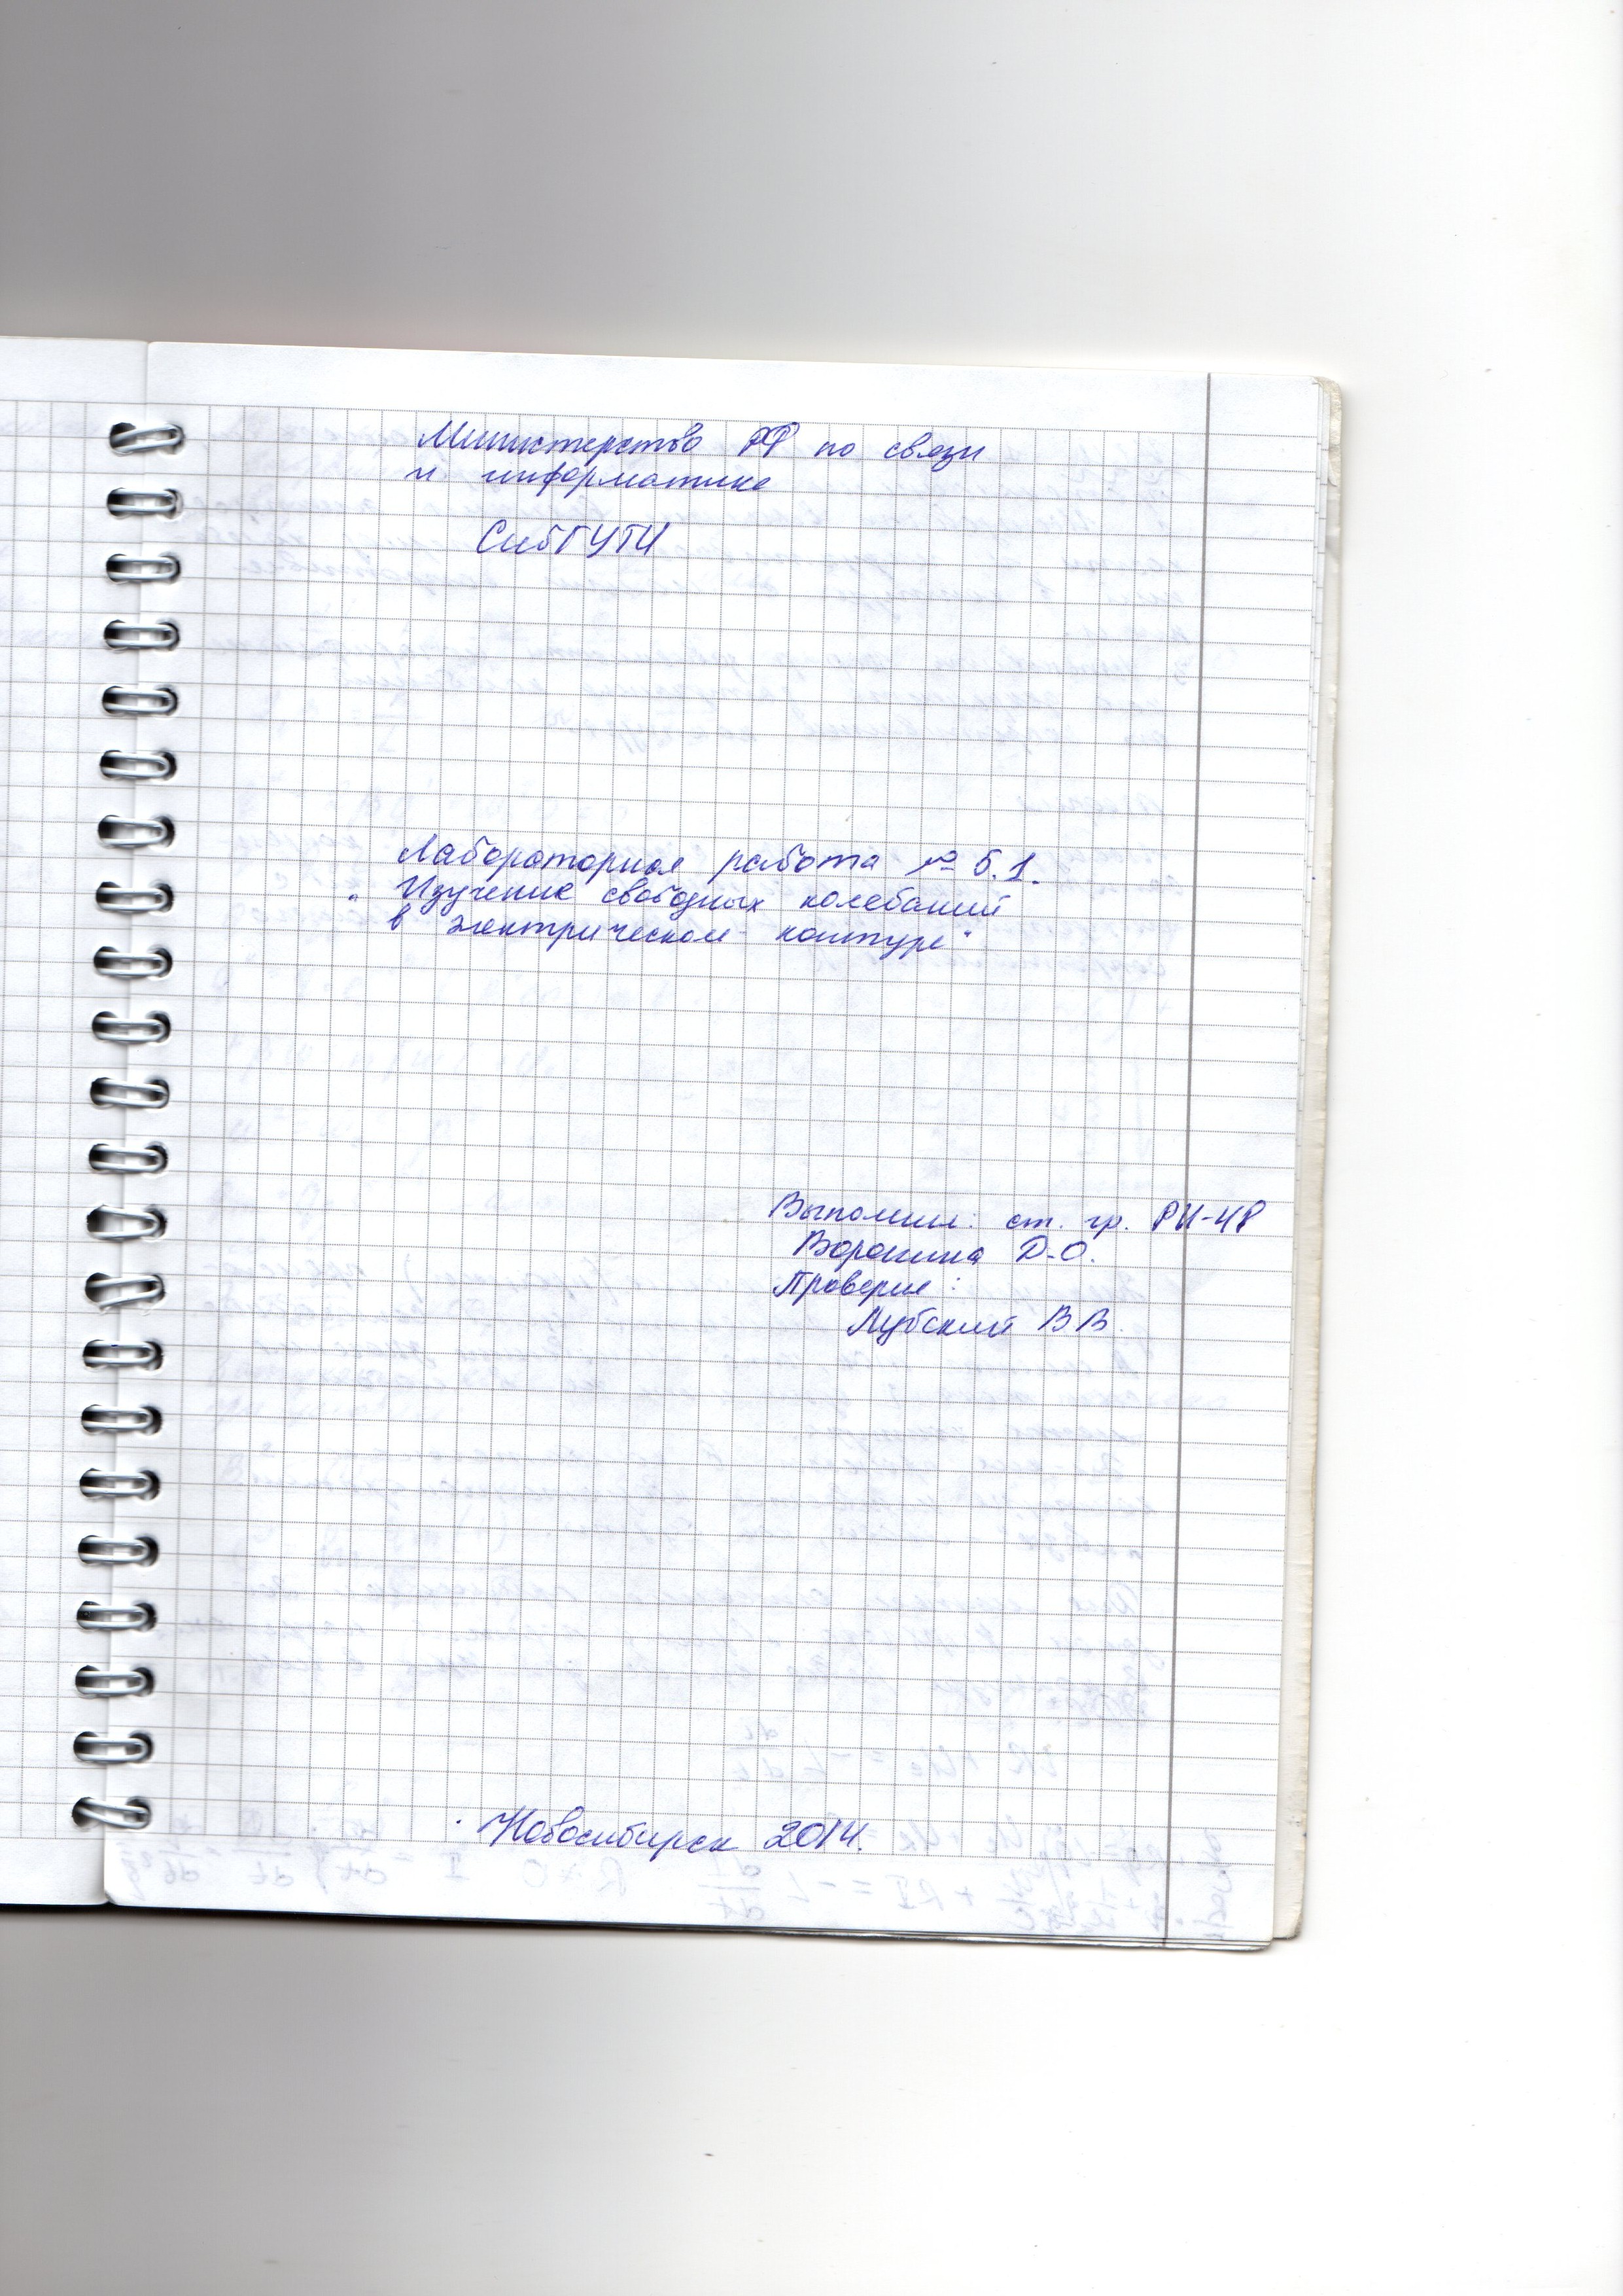 Министерство РФ по связи
и информатике
СибГУТИ
Лабораторная работа № 5.1.
"Изучение свободных колебаний
в электрическом контуре"
Выполнил: ст. гр. РИ-48
Воронина Д.О.
Проверил:
Лубский В В.
Новосибирск 2014.